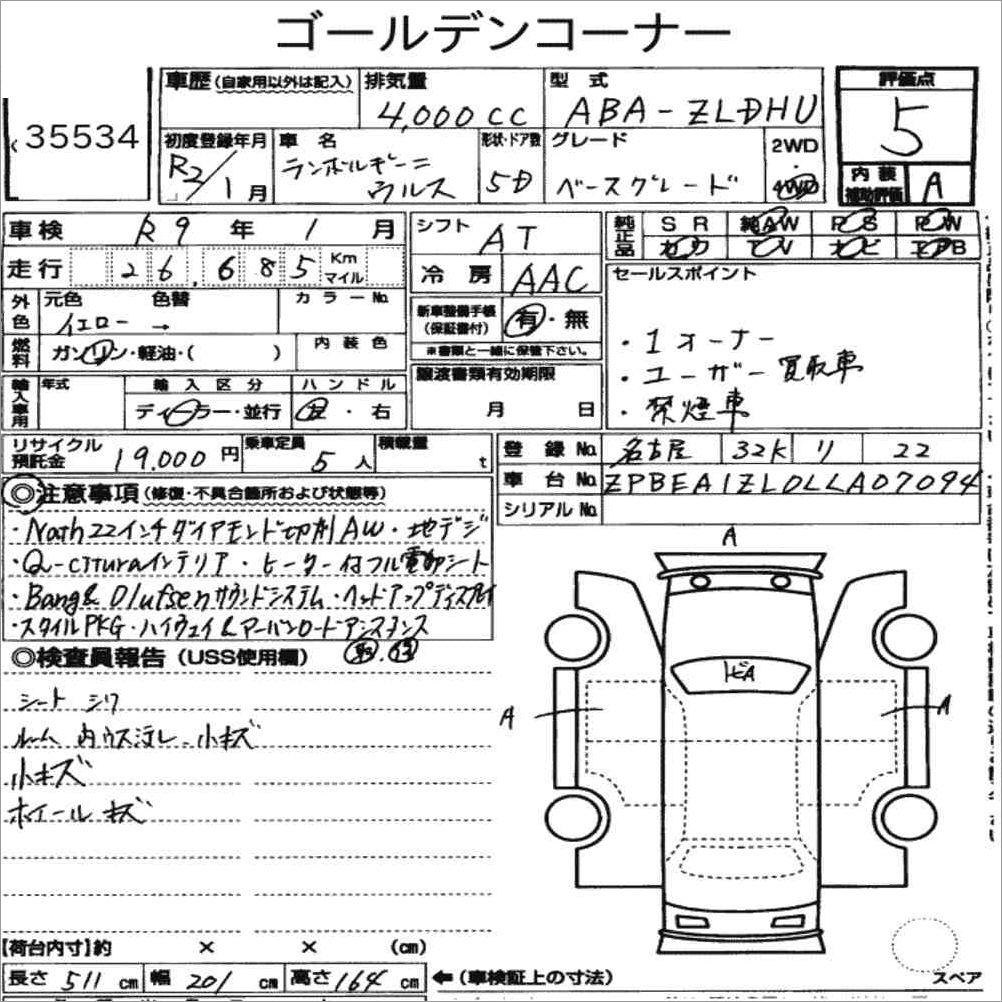 ゴールデンコーナー
35534
車歴(自家用以外は記入) 排気量 4,000cc 型式 ABA-ZLDHU 評価点 5
初度登録年月 R2/1月 車名 ランボルギーニ ウルス 形状・ドア数 5D グレード ベースグレード 2WD・4WD 内装補助評価 A
車検 R9年 1月 シフト AT 純正品 SR 純AW PS PW
走行 26,685 Km マイル 冷房 AAC カワ TV ナビ エアB
外色 元色 イエロー 色替 → カラーNo. 新車整備手帳(保証書付) 有・無 セールスポイント
燃料 ガソリン・軽油・( ) 内装色 ※書類と一緒に保管下さい。 ・1オーナー
・ユーザー買取車
輸入車用 年式 輸入区分 ハンドル 譲渡書類有効期限 ・禁煙車
ディーラー・並行 左・右 月 日
リサイクル預託金 19,000円 乗車定員 5人 積載量 t 登録No. 名古屋 32K リ 22
車台No. ZPBEA1ZL0LLA07094
シリアルNo.
◎注意事項(修復・不具合箇所および状態等)
・Nath22インチダイアモンド切削AW・地デジ
・Q-cituraインテリア・ヒーター付フル電動シート
・Bang & Olufsenサウンドシステム・ヘッドアップディスプレイ
・スタイルPKG・ハイウェイ&アーバンロードアシスタンス
◎検査員報告(USS使用欄)
シート シワ
ルーム 内ウス汚レ 小キズ
小キズ
ホイール キズ
A
トビA
A
A
【荷台内寸】約 × × (cm)
長さ 511 cm 幅 201 cm 高さ 164 cm ←(車検証上の寸法) スペア